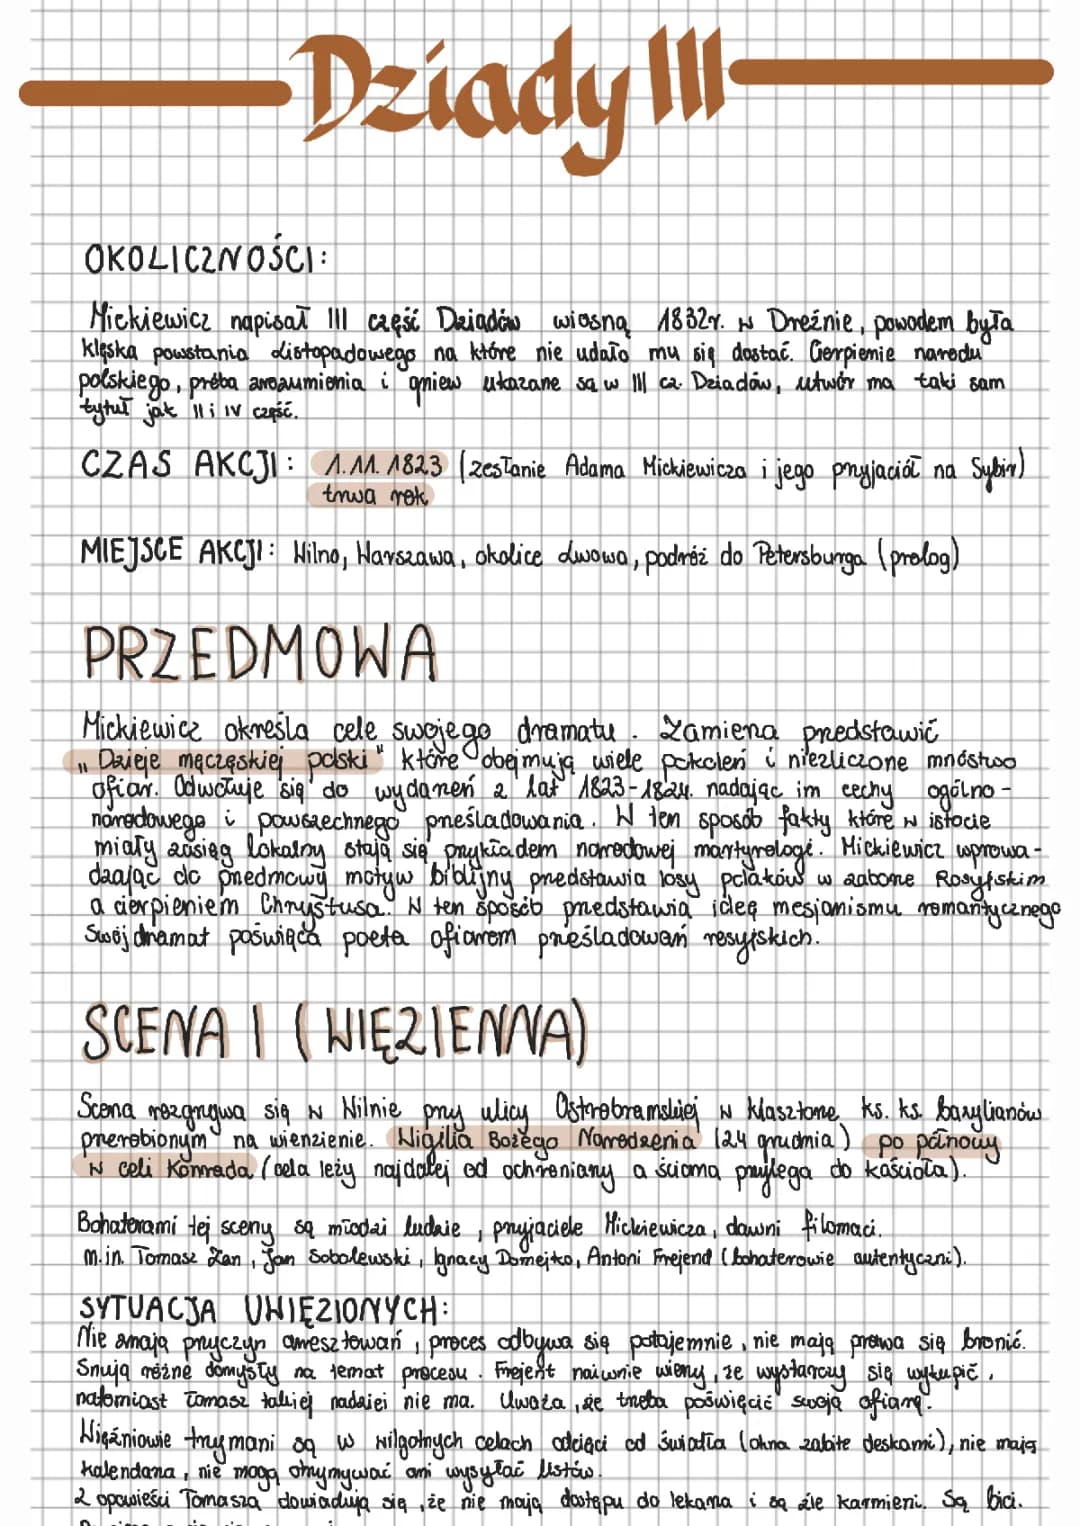 Dziady III
OKOLICZNOŚCI:
Mickiewicz napisał III część Dziadów wiosną 1832r. w Dreźnie, powodem była
klęska powstania listopadowego na które nie udało mu się dostać. Cierpienie narodu
polskiego, próba zrozumienia i gniew ukazane są w III cz. Dziadów, utwór ma taki sam
tytuł jak II i IV część.
CZAS AKCJI: 1.11.1823 (zesłanie Adama Mickiewicza i jego przyjaciół na Sybir)
trwa rok
MIEJSCE AKCJI: Wilno, Warszawa, okolice Lwowa, podróż do Petersburga (prolog)
PRZEDMOWA
Mickiewicz określa cele swojego dramatu. Zamierza przedstawić
„Dzieje męczęskiej polski" które obejmują wiele pokoleń i niezliczone mnóstwo
ofiar. Odwołuje się do wydarzeń z lat 1823-1824. nadając im cechy ogólno-
narodowego i powszechnego prześladowania. W ten sposób fakty które w istocie
miały zasięg lokalny stają się przykładem narodowej martyrologi. Mickiewicz wprowa-
dzając do przedmowy motyw biblijny przedstawia losy polaków w zaborze Rosyjskim
a cierpieniem Chrystusa. W ten sposób przedstawia ideę mesjanizmu romantycznego
Swój dramat poświęca poeta ofiarom prześladowań rosyjskich.
SCENA I (WIĘZIENNA)
Scena rozgrywa się w Wilnie przy ulicy Ostrobramskiej w klasztorze ks. ks. bazylianów
przerobionym na wienzienie. Wigilia Bożego Narodzenia (24 grudnia) po północy
w celi Konrada (cela leży najdalej od ochraniany a ścianą przylega do kościoła).
Bohaterami tej sceny są młodzi ludzie, przyjaciele Mickiewicza, dawni filomaci.
m.in. Tomasz Zan, Jan Sobolewski, Ignacy Domejko, Antoni Frejend (bohaterowie autentyczni).
SYTUACJA UWIĘZIONYCH:
Nie znają przyczyn aresztowań, proces odbywa się potajemnie, nie mają prawa się bronić.
Snują różne domysły na temat procesu. Frejent naiwnie wierzy, że wystarczy się wykupić,
natomiast Tomasz takiej nadziei nie ma. Uważa, że trzeba poświęcić swoją ofiarę.
Więźniowie trzymani są w wilgotnych celach odcięci od światła (okna zabite deskami), nie mają
kalendarza, nie mogą otrzymywać ani wysyłać listów.
Z opowieści Tomasza dowiadują się, że nie mają dostępu do lekarza i są źle karmieni. Są bici.